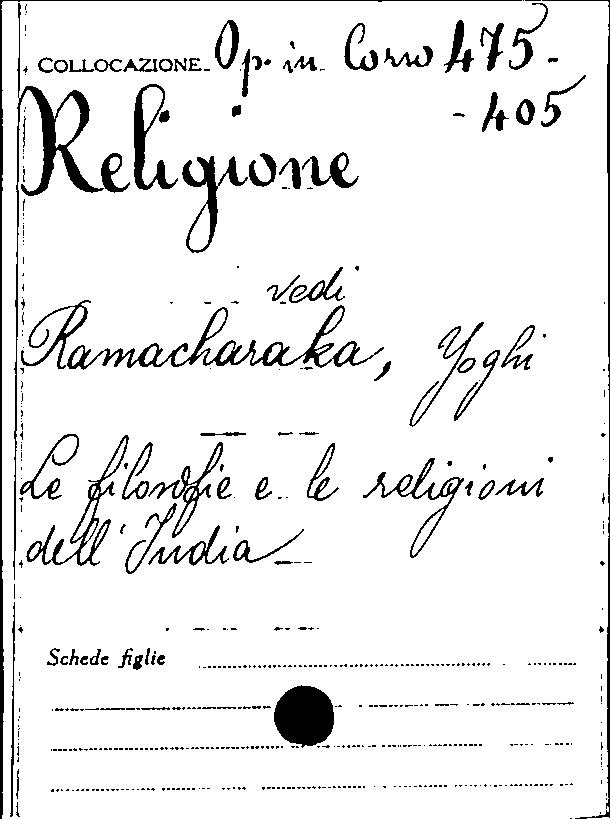 COLLOCAZIONE Op. in Corso 475-
-405
Religione
vedi
Ramacharaka, Yoghi
Le filosofie e le religioni
dell'India
Schede figlie